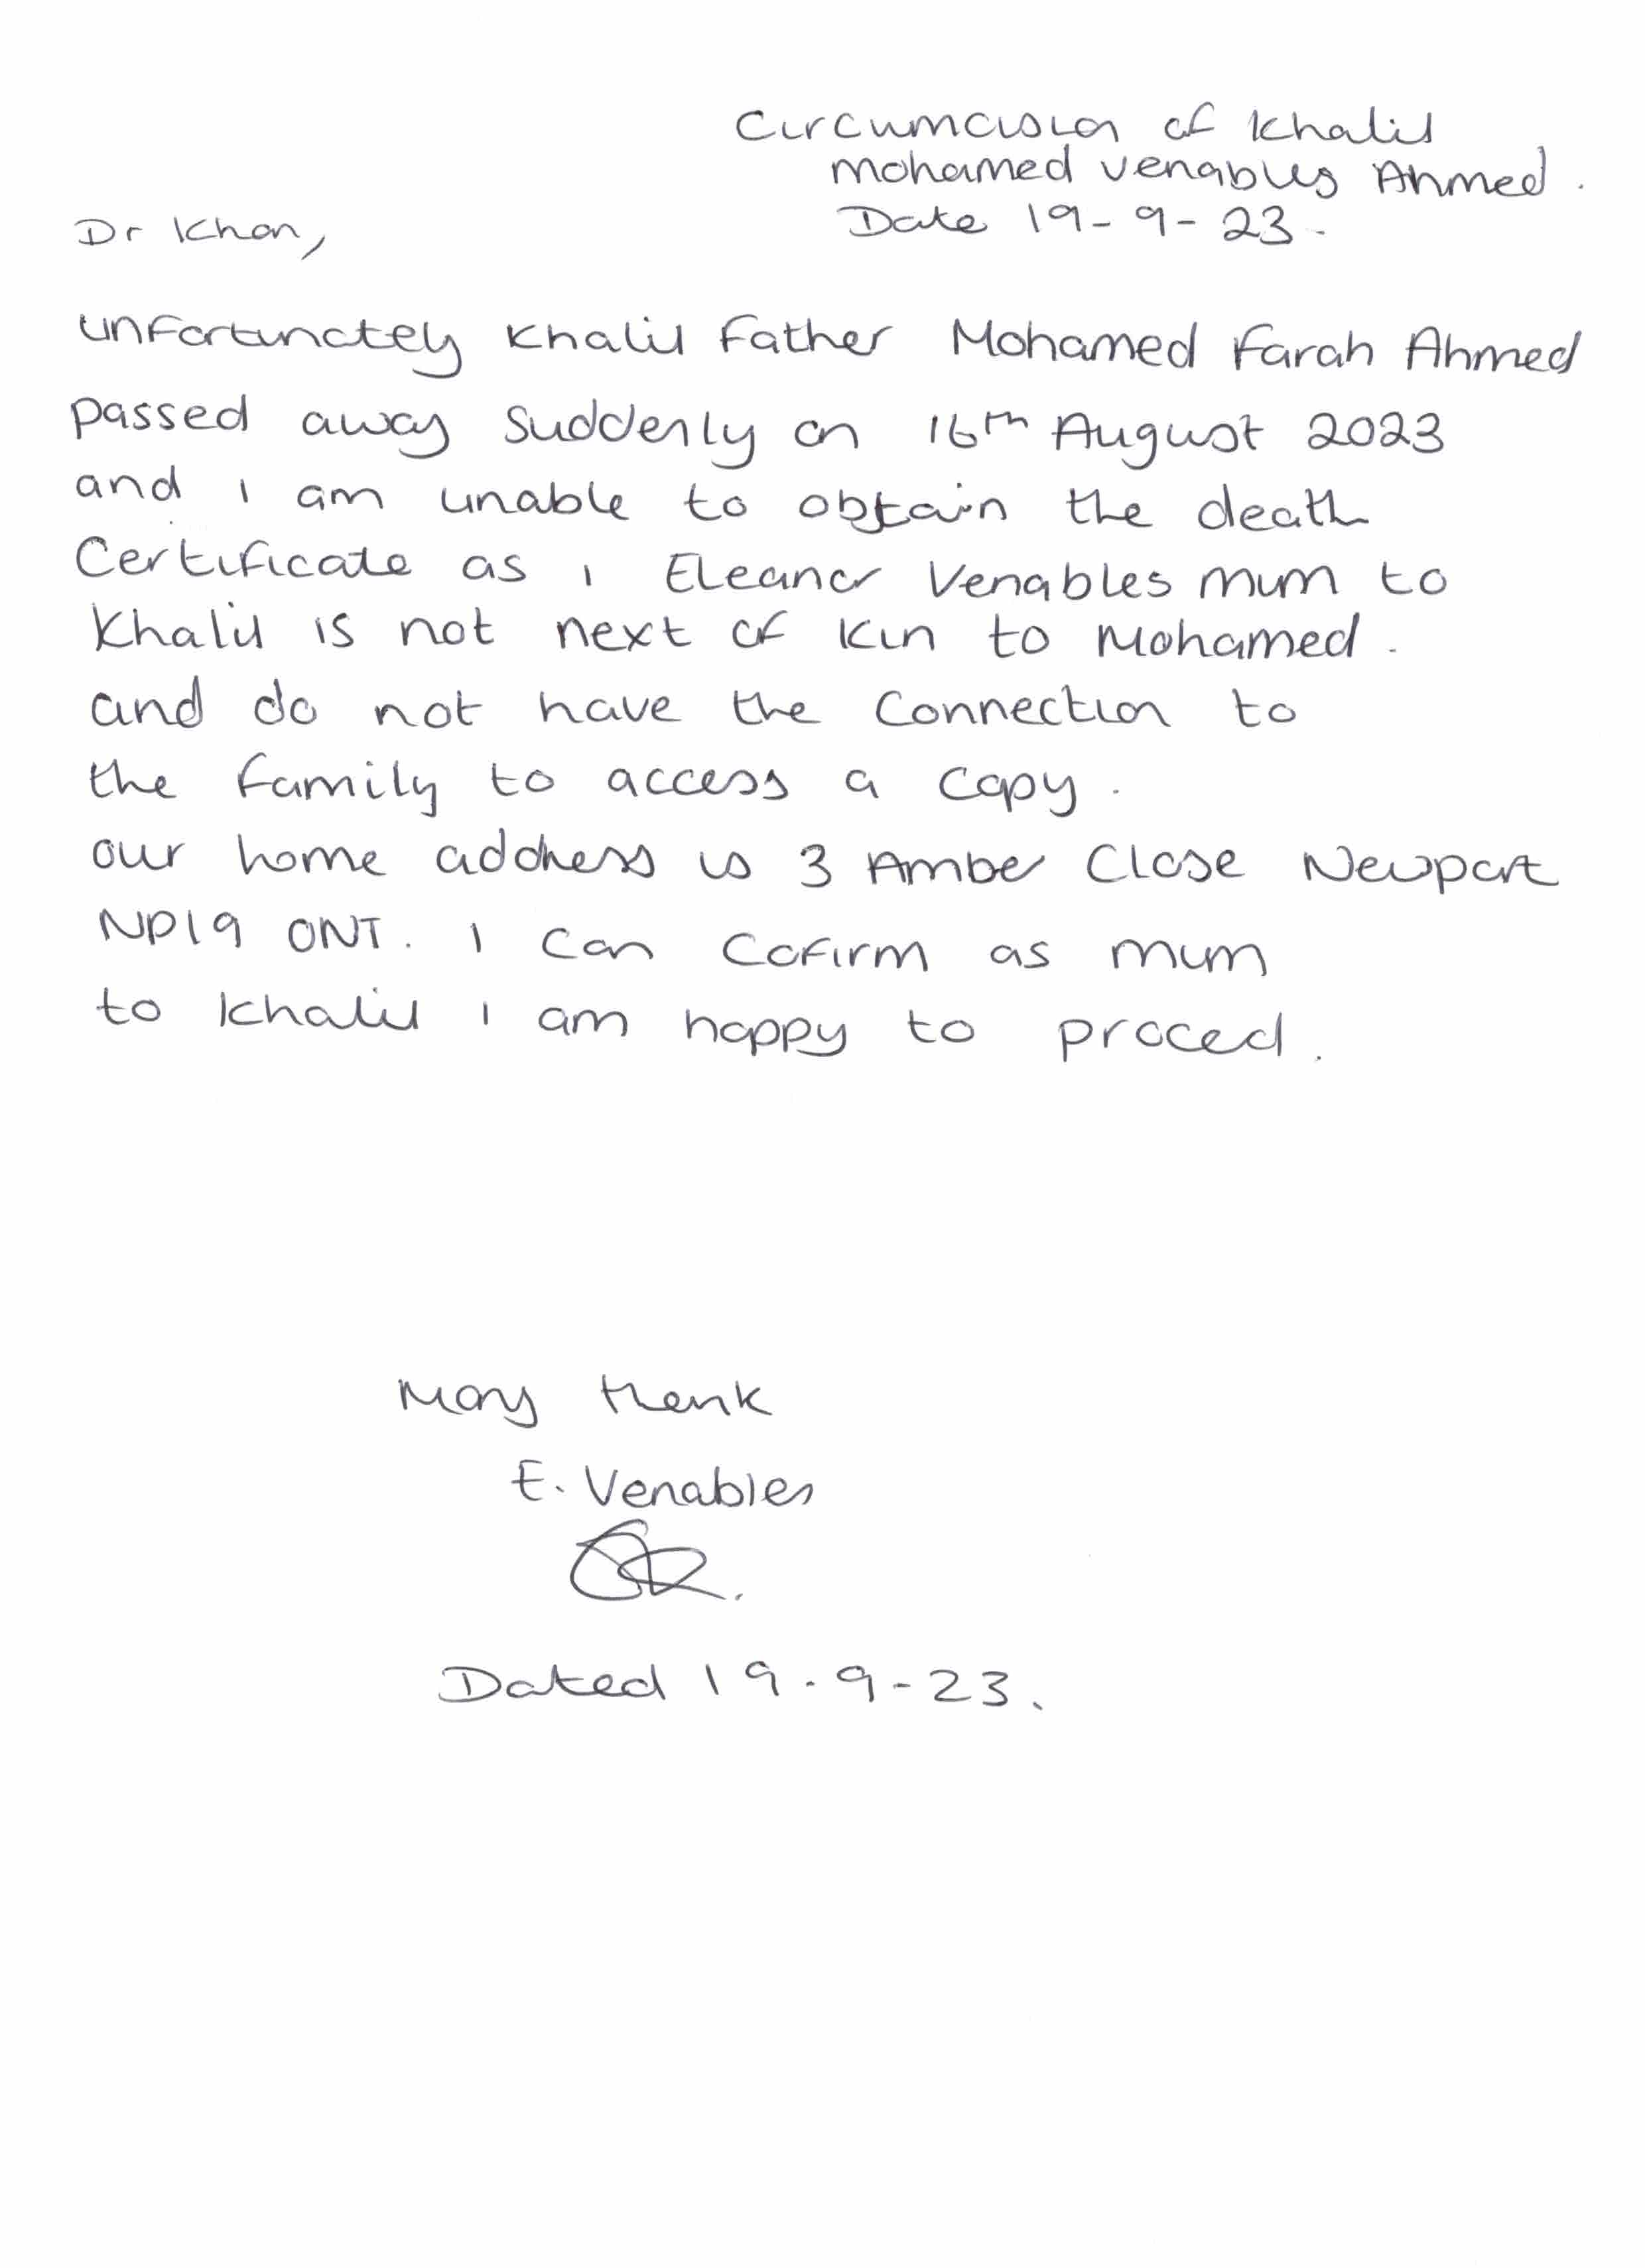 Circumcision of Khalil
Mohamed Venables Ahmed.
Date 19-9-23.
Dr Khan,
unfortunately Khalil Father Mohamed Farah Ahmed
passed away suddenly on 16th August 2023
and I am unable to obtain the death
Certificate as I Eleanor Venables mum to
Khalil is not next of kin to Mohamed.
and do not have the connection to
the family to access a copy.
our home address is 3 Amber Close Newport
NP19 0NT. I can Cofirm as mum
to Khalil I am happy to proceed.
Many thank
E. Venables
Dated 19.9-23.